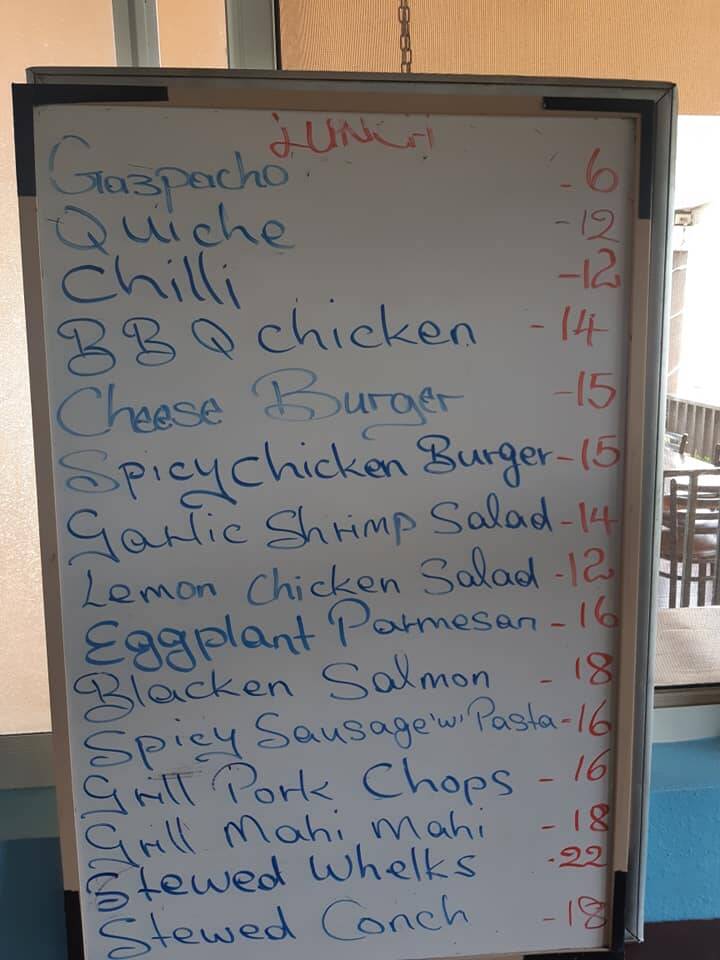 LUNCH
Gazpacho - 6
Quiche - 12
Chilli - 12
BBQ chicken - 14
Cheese Burger - 15
Spicy chicken Burger - 15
Garlic Shrimp Salad - 14
Lemon Chicken Salad - 12
Eggplant Parmesan - 16
Blacken Salmon - 18
Spicy Sausage 'w' Pasta - 16
Grill Pork Chops - 16
Grill Mahi Mahi - 18
Stewed Whelks - 22
Stewed Conch - 18